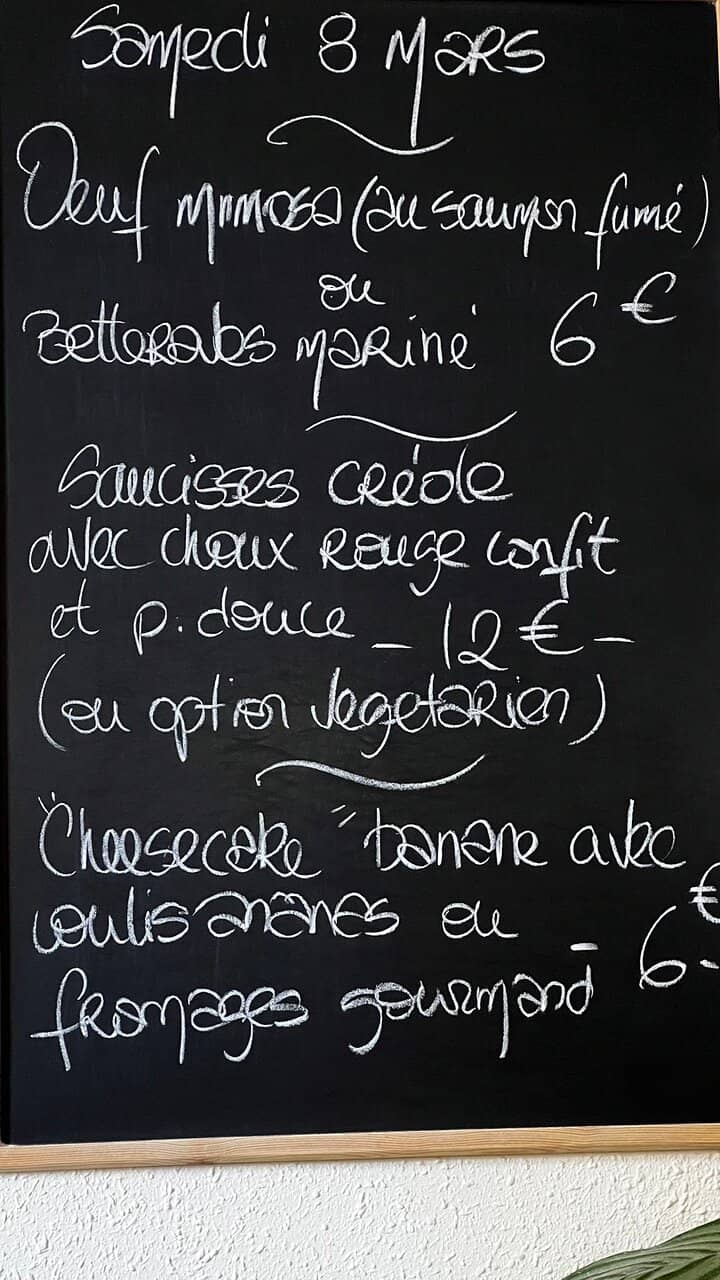 Samedi 8 Mars
Oeuf mimosa (au saumon fumé)
ou
Betterabs mariné 6 €
Saucisses créole
avec choux rouge confit
et p. douce - 12 € -
(ou option vegetarien)
"Cheesecake" banane avec
coulis ananas ou
fromages gourmand - 6 € -